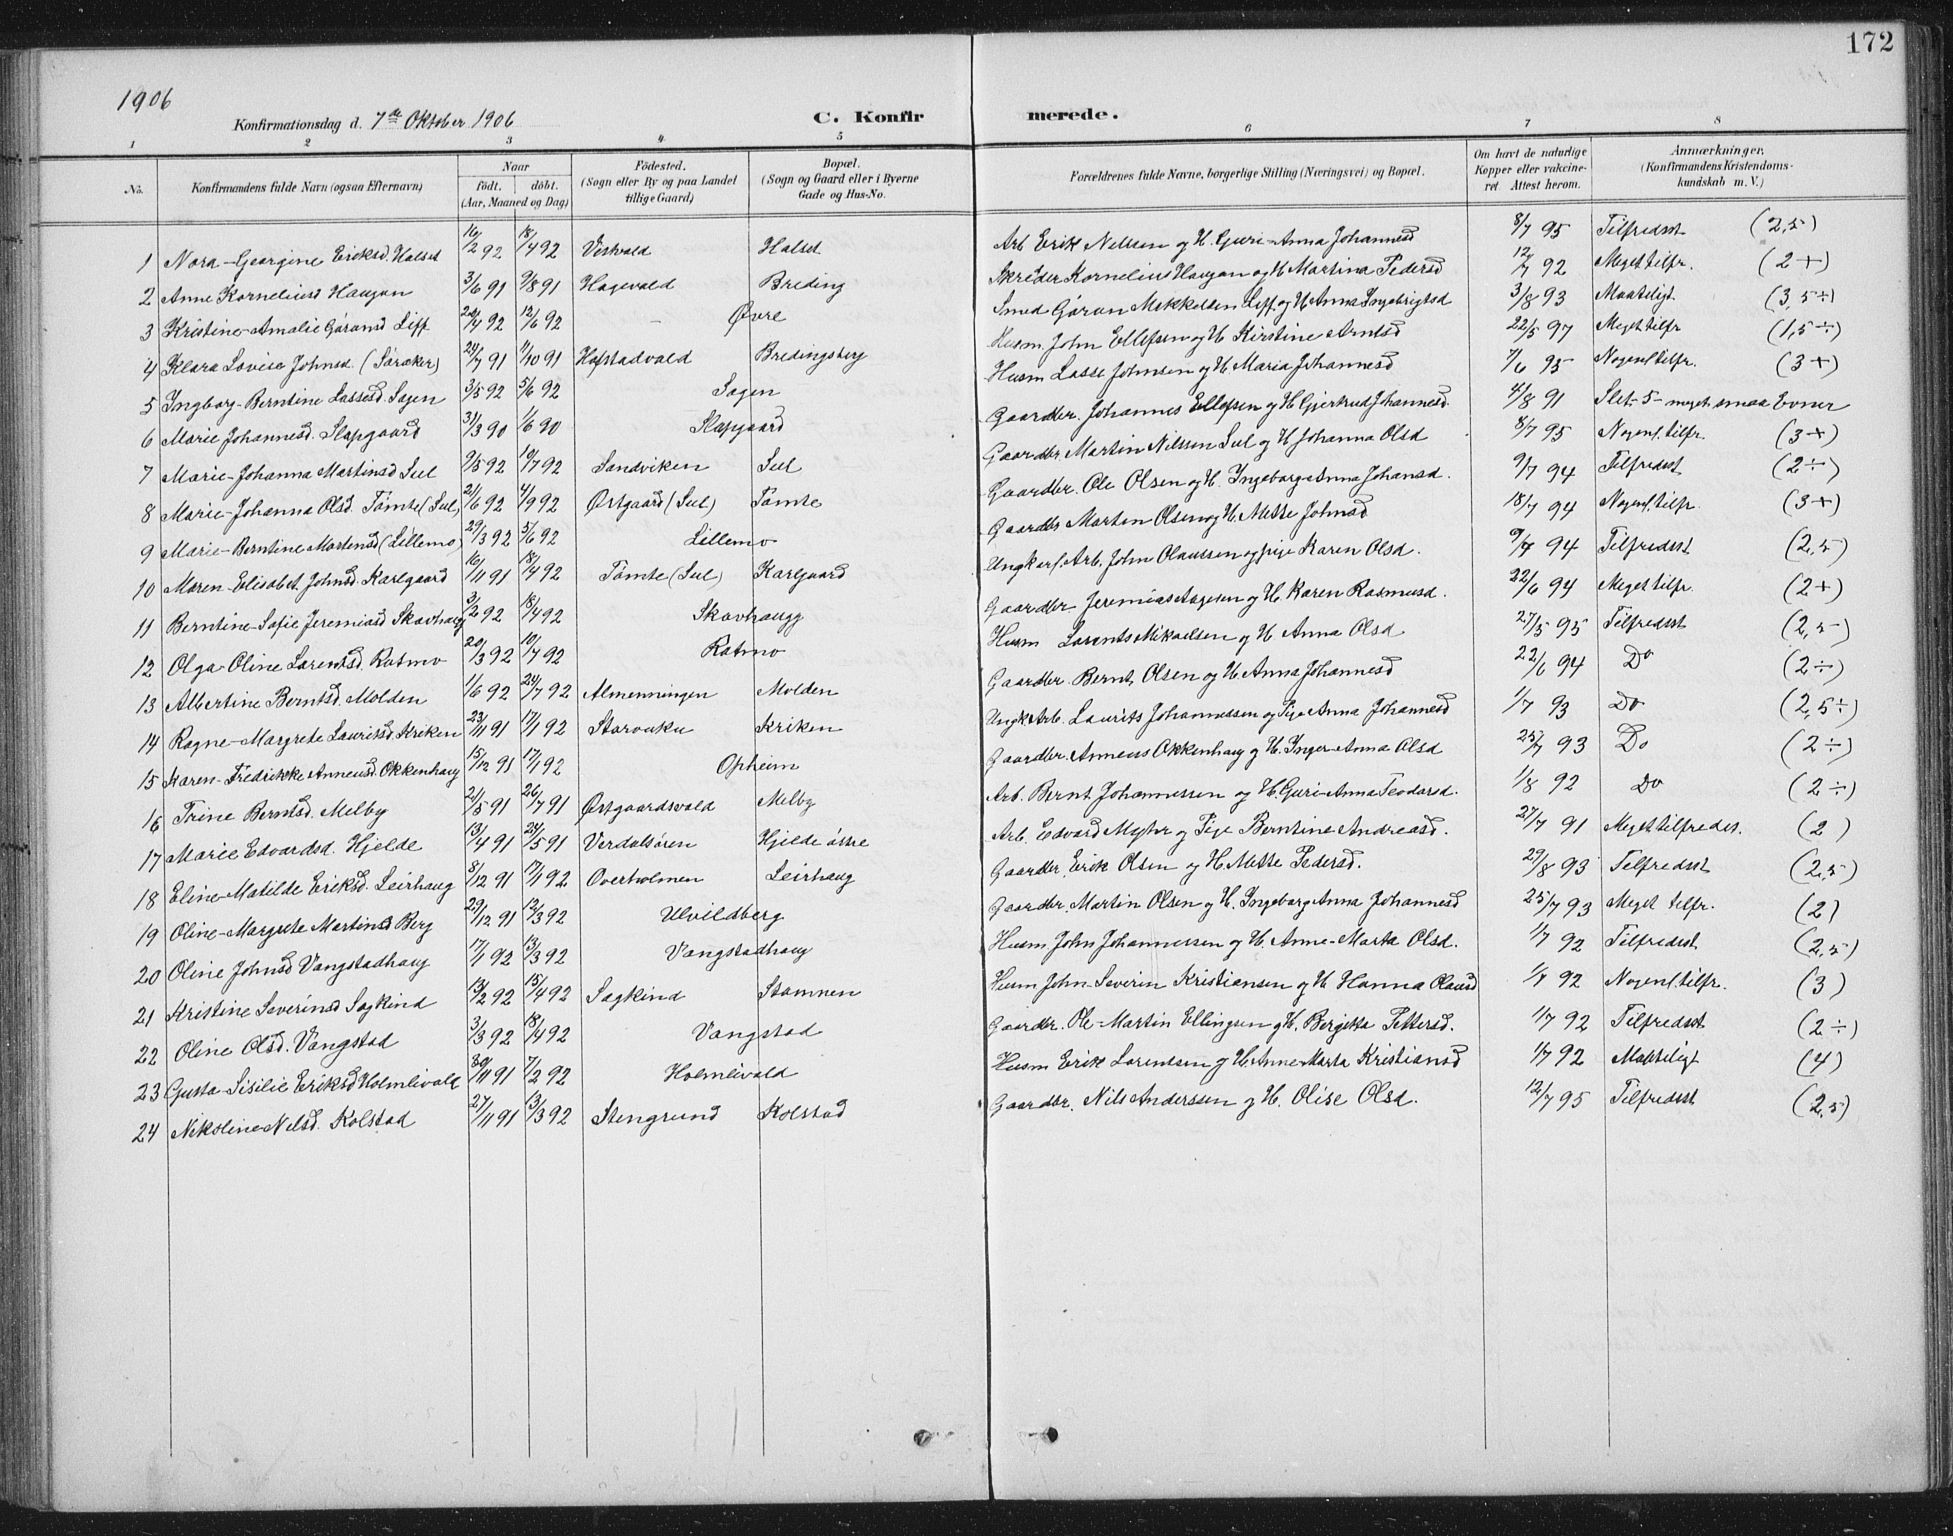 172
1906
Konfirmationsdag d. 7de Oktober 1906 C. Konfirmerede.
1 2 3 4 5 6 7 8
No. Konfirmandens fulde Navn (ogsaa Efternavn) Naar födt. döbt. (Aar, Maaned og Dag) Födested. (Sogn eller By og paa Landet tillige Gaard) Bopæl. (Sogn og Gaard eller i Byerne Gade og Hus-No. Forældrenes fulde Navne, borgerlige Stilling (Næringsvei) og Bopæl. Om havt de naturlige Kopper eller vakcineret Attest herom. Anmærkninger. (Konfirmandens Kristendomskundskab m. V.)
1 Nora-Georgine Eriksd. Halset 16/2 92 18/4 92 Vestvald Halset Arb. Erik Nilssen og H. Guri-Anna Johannesd 8/7 95 Tilfredsst (2,5)
2 Anne Korneliusd Haugan 3/6 91 9/8 91 Hagevald Breding Skræder Kornelius Haugan og H. Martina Pedersd 12/7 92 Meget tilfr. (2+)
3 Kristine-Amalie Göransd Liff 20/4 92 12/6 92 - Øvre Smed Göran Mikkelsen Liff og H. Anna Ingebrigtsd 3/8 93 Maateligt (3,5÷)
4 Klara Lovise Johnsd. (Søraker) 24/7 91 11/10 91 Hofstadvald Bredingsberg Husm. John Ellefsen og H. Kirstine Arntsd 22/5 97 Meget tilfr (1,5÷)
5 Ingborg-Berntine Lassesd. Sagen 3/5 92 5/6 92 Sagen Husm Lasse Johnsen og H. Maria Johannesd 7/6 95 Nogenl. tilfr. (3+)
6 Marie Johannesd. Slapgaard 31/3 90 1/6 90 Slapgaard Gaardbr. Johannes Ellefsen og H. Gjertrud Johannesd. 4/8 91 Slet-5- meget smaa Evner
7 Marie-Johanna Martinsd Sul 9/5 92 10/7 92 Sandviken Sul Gaardbr. Martin Nilssen Sul og H. Johanna Olsd 8/7 95 Nogenl. tilfr. (3+)
8 Marie-Johanna Olsd. Tömte (Sul) 21/6 92 4/9 92 Østgaard (Sul) Tömte Gaardbr. Ole Olsen og H. Ingeborg-Anna Johansd. 9/7 94 Tilfredsst (2÷)
9 Marie-Berntine Martensd (Lillemo) 29/3 92 5/6 92 Lillemo Gaardbr Marten Olsen og H. Mette Johnsd 18/7 94 Nogenl. tilfr. (3+)
10 Maren-Elisabet Johnsd. Karlgaard 16/11 91 18/4 92 Tömte (Sul) Karlgaard Ungkarl. Arb. John Olaussen og pige Karen Olsd. 9/7 94 Tilfredsst (2,5)
11 Berntine-Sofie Jeremiasd Skavhaug 3/2 92 18/4 92 Skavhaugg Gaardbr. Jeremias Aagesen og H. Karen Rasmusd. 22/6 94 Meget tilfr. (2+)
12 Olga-Oline Larentsd. Ratmo 20/3 92 10/7 92 Ratmo Husm Larents Mikaelsen og H. Anna Olsd 27/5 95 Tilfredsst (2,5)
13 Albertine Berntsd. Molden 1/6 92 24/7 92 Almenningen Molden Gaardbr. Bernt Olsen og H. Anna Johannesd 22/6 94 Do (2÷)
14 Ragne-Margrete Lauritsd. Kriken 23/11 91 17/1 92 Storvuku Kriken Ungk. Arb. Laurits Johannessen og Pige Anna Johannesd 1/7 93 Do (2,5÷)
15 Karen-Fredrikke Anneusd. Okkenhaug 15/12 91 17/1 92 Opheim Gaardbr. Anneus Okkenhaug og H. Inger-Anna Olsd 25/7 93 Do (2÷)
16 Trine Berntsd. Melby 21/5 91 26/7 91 Østgaardsvald Melby Arb. Bernt Johannessen og H. Guri-Anna Teodorsd. 1/8 92 Do (2÷)
17 Marie Edvardsd. Hjelde 13/4 91 24/5 91 Verdalsören Hjelde østre Arb. Edvard Myhr og Pige Berntine Andreasd. 27/7 91 Meget tilfredss. (2)
18 Eline-Matilde Eriksd. Leirhaug 8/12 91 17/1 92 Overholmen Leirhaug Gaardbr. Erik Olsen og H. Mette Pedersd. 29/8 93 Tilfredsst (2,5)
19 Oline-Margrete Martinsd Berg 29/12 91 12/3 92 Ulvildberg Gaardbr. Martin Olsen og H. Ingeborg-Anna Johannesd 25/7 93 Meget tilfr. (2)
20 Oline Johnsd Vangstadhaug 17/1 92 13/3 92 Vangstadhaug Husm. John Johannessen og H. Anne-Marta Olsd. 1/7 92 Tilfredsst (2,5)
21 Kristine Severinsd Sagkind 13/2 92 15/4 92 Sagkind Stamnen Husm John-Severin Kristiansen og H. Hanna Olausd 1/7 92 Nogenl. tilfr. (3)
22 Oline Olsd. Vangstad 3/3 92 18/4 92 Vangstad Gaardbr. Ole-Martin Ellingsen og H. Bergitta Pettersd. 1/7 92 Tilfredsst (2÷)
23 Gusta-Sisilie Eriksd Holmlivald 30/11 91 7/2 92 Holmlivald Husm Erik Larentsen og H. Anne-Marta Kristiansd 1/7 92 Maateligt (4)
24 Nikoline Nilsd. Kolstad 27/11 91 13/3 92 Stengrund Kolstad Gaardbr. Nils Anderssen og H. Olise Olsd. 12/7 95 Tilfredsst (2,5)